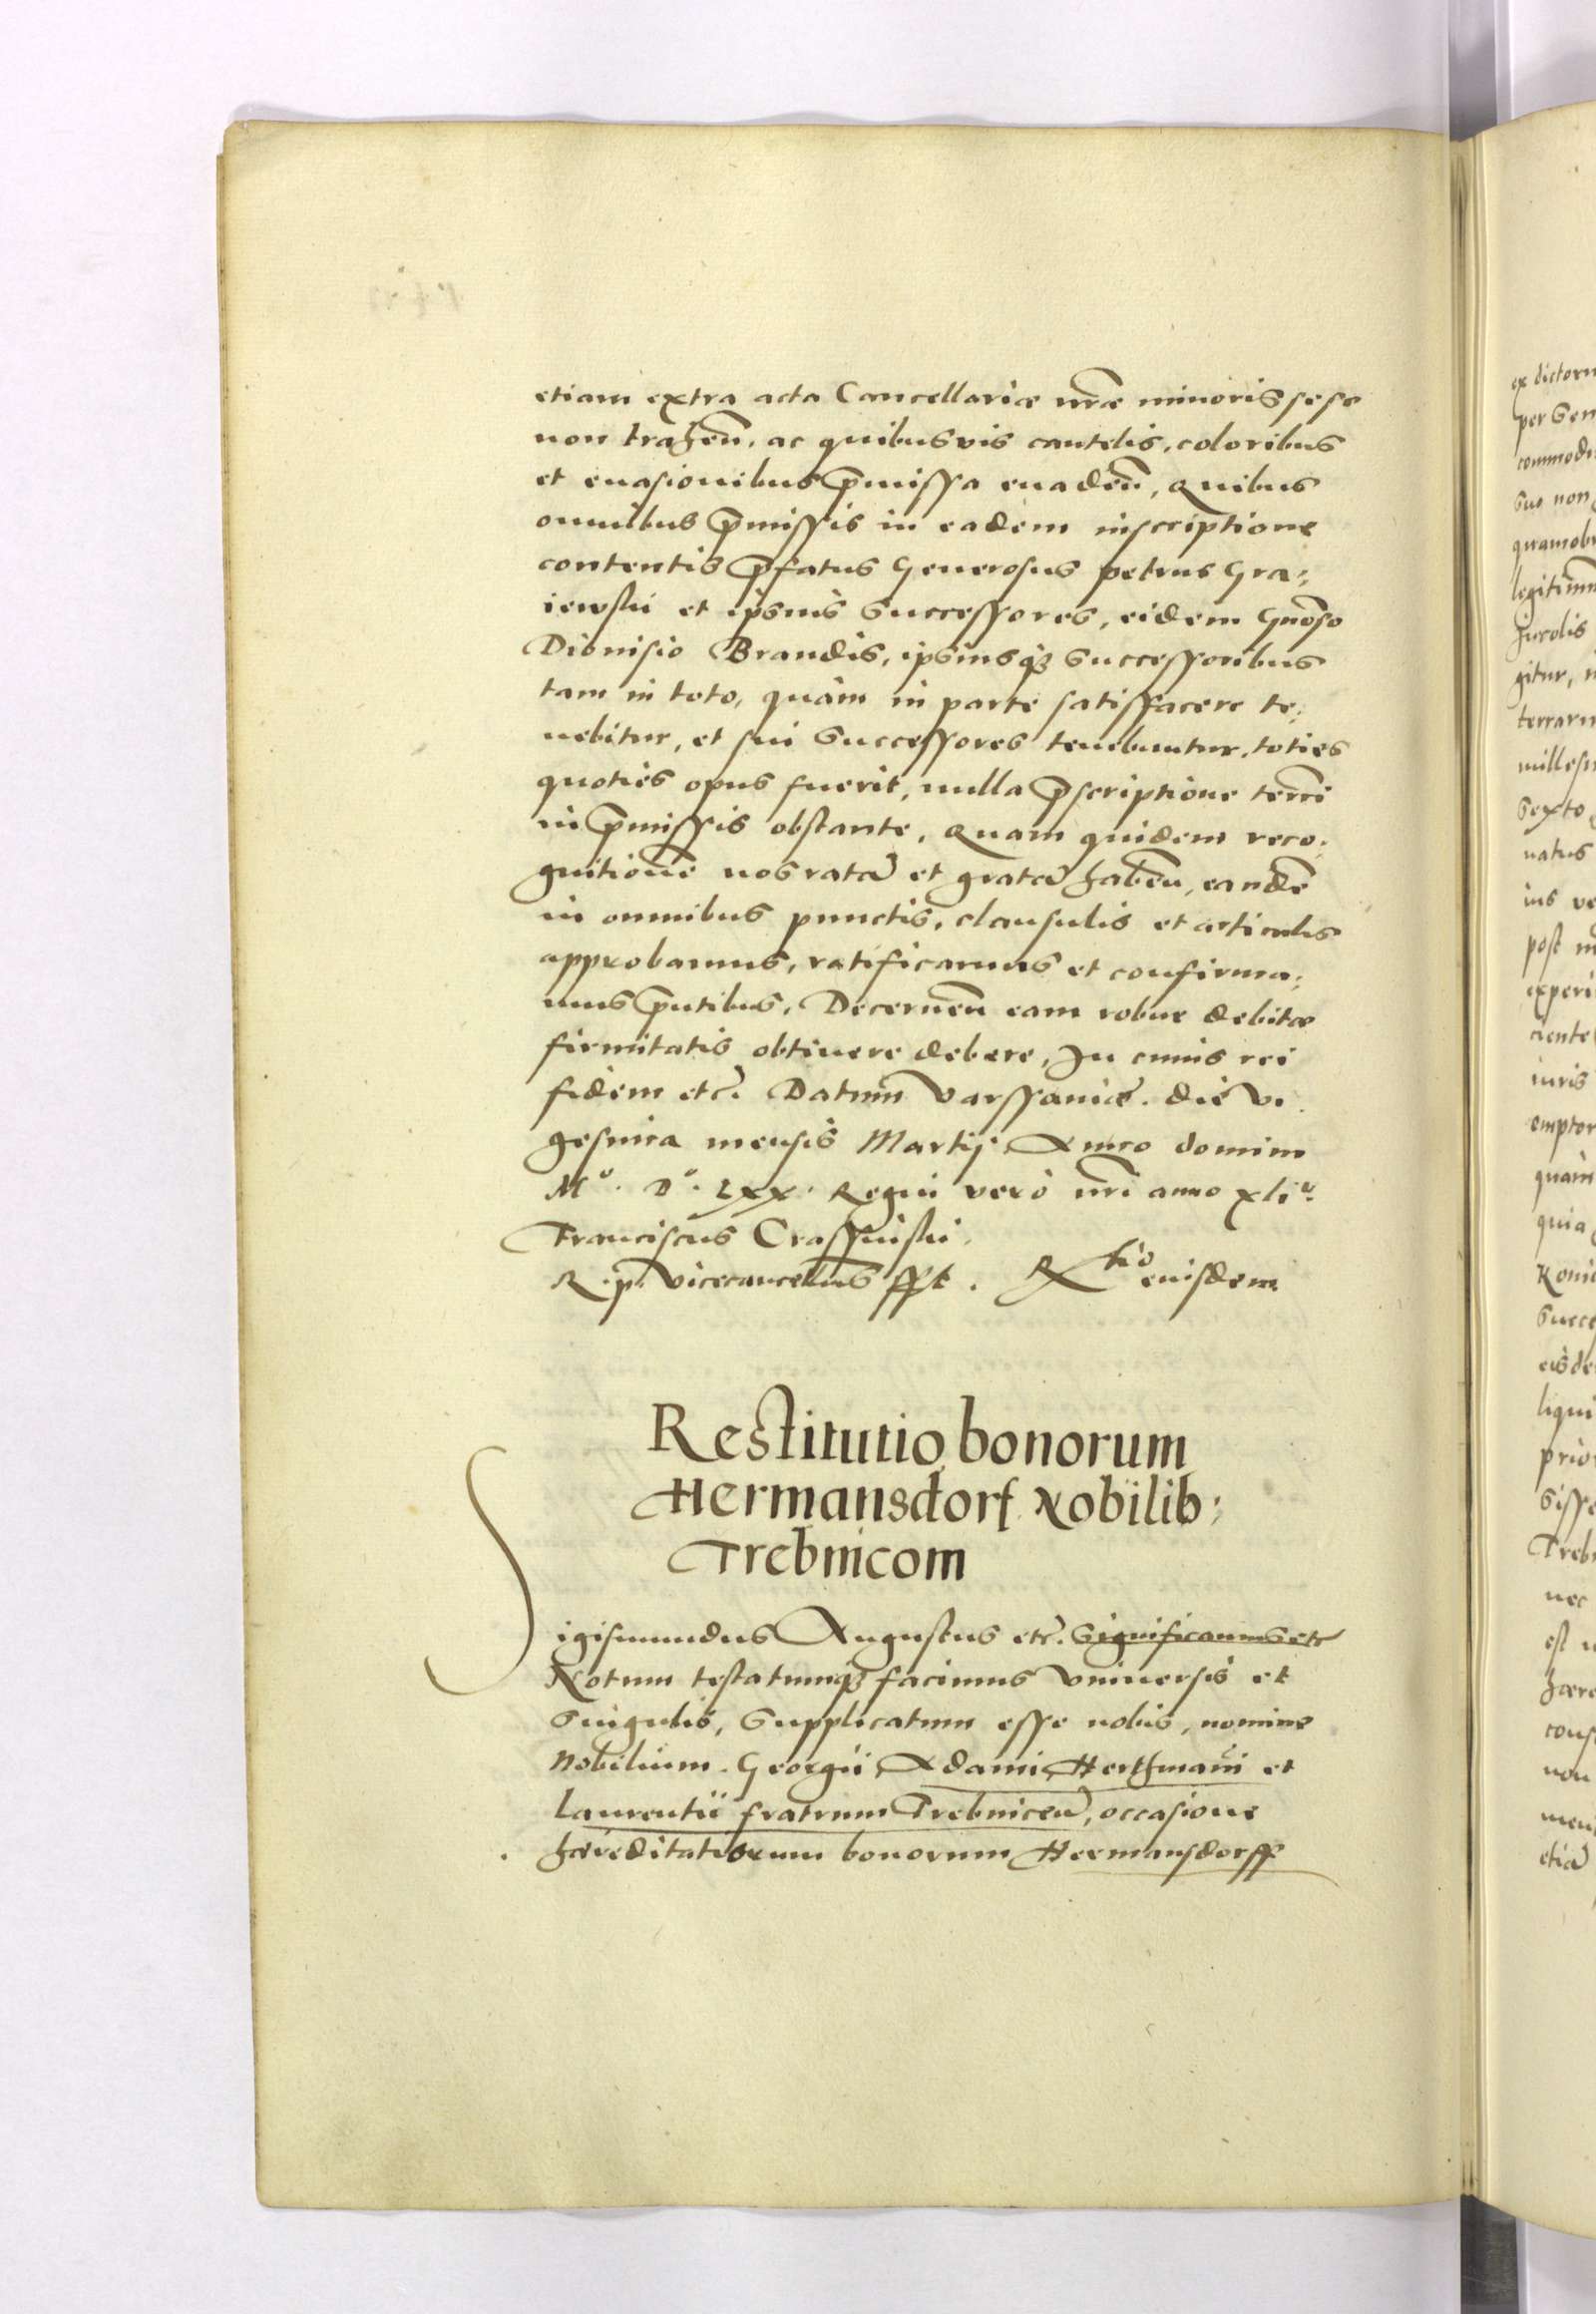 etiam extra acta Cancellariæ nr̃æ minoris sese
non trahen̄, ac quibusvis cautelis, coloribus
et euasionibus p̃missa euaden̄, Quibus
omnibus p̃missis in eadem inscriptione
contentis p̃fatus Generosus petrus Gra,,
iewski et ipsius successores, eidem Gnõso
Dionisio Brandis, ipsiusq₃ successoribus
tam in toto, quàm in parte satisfacere te,,
nebitur, et sui successores tenebuntur, toties
quoties opus fuerit, nulla p̃scriptione terrẽ
in p̃missis obstante, Quam quidem reco,,
gnitionẽ nos ratã et gratã haben̄, eandẽ
in omnibus punctis, clausulis et articulis
approbamus, ratificamus et confirma,,
mus p̃ntibus, Decernen̄ eam robur debitæ
firmitatis obtinere debere, In cuius rei
fidem etc̃. Datum Varssauiæ. die vi
gesima mensis Martij Anno domini
Mº. Dº. Lxx. Regni verò nr̃i anno xliº.
Franciscus Crassinski
R. p. Vicecancellarius sspt. R̃tio eiusdem.
Restitutio bonorum
Hermansdorf Nobilib:
Trebnicom
Sigismundus Augustus etc̃. Significamus etc
Notum testatumq₃ facimus Vniuersis et
singulis, Supplicatum esse nobis, nomine
Nobilium. Georgii, Adami, Herthmani et
Laurentii fratrum Trebnicen̄, occasione
hæreditatiorum bonorum Hermansdorff
ex dictoru
per Gen
commodi
suo non
quamobr
legitimu
Incolis
gitur, i
terraru
millesi
sexto
natus
ius ve
post m
experi
ciente
iuris
emptor
quàm
quia
Koni
succe
eisde
liqui
prio
sisse
Treb
nec
est
hære
cons
non
men
etiã